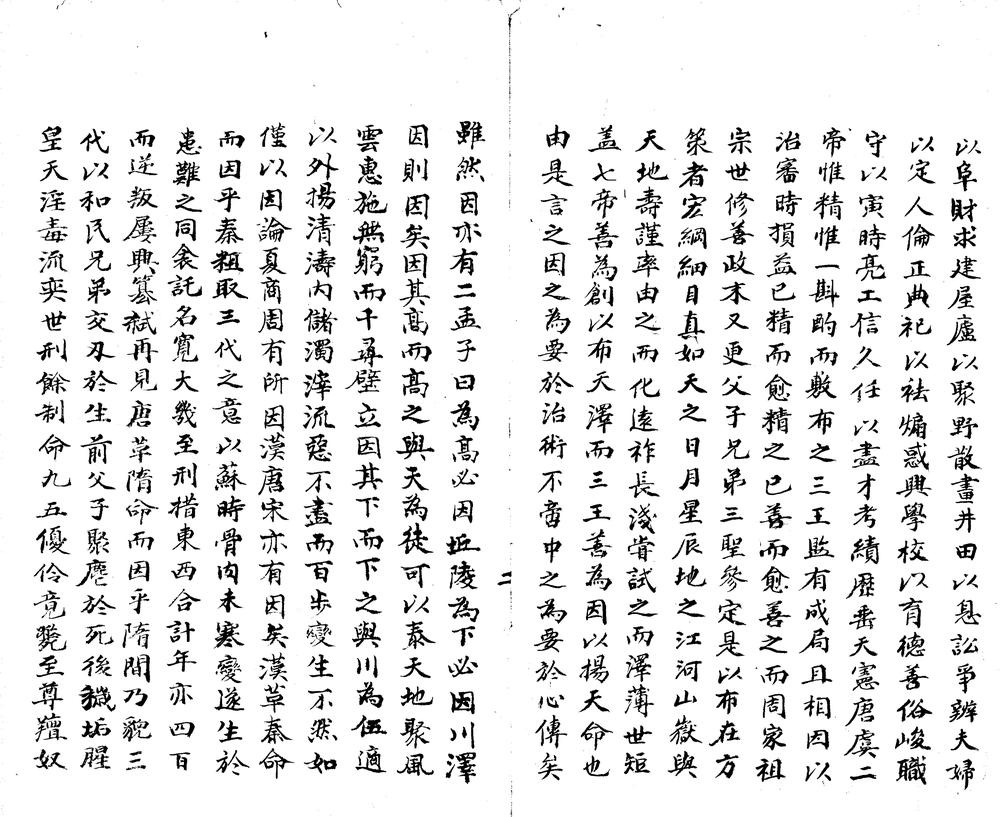 以阜財求建屋廬以聚野散畫井田以息訟爭辦夫婦
以定人倫正典祀以祛煽惑興學校以育德善俗峻職
守以寅時亮工信久任以盡才考績歷垂天憲唐虞二
帝惟精惟一斟酌而敷布之三王監有成局且相因以
治審時損益已精而愈精之已善而愈善之而周家祖
宗世修善政末又更父子兄弟三聖參定是以布在方
策者宏綱細目真如天之日月星辰地之江河山嶽與
天地壽謹率由之而化遠祚長淺嘗試之而澤薄世短
盖七帝善為創以布天澤而三王善為因以揚天命也
由是言之因之為要於治術不啻中之為要於心傳矣
二
雖然因亦有二孟子曰為高必因丘陵為下必因川澤
因則因矣因其髙而髙之與天為徒可以泰天地聚風
雲惠施無窮而千尋壁立因其下而下之與川為伍適
以外揚清濤內儲濁滓流惡不盡而百步變生不然如
僅以因論夏商周有所因漢唐宋亦有因矣漢草秦命
而因乎秦粗取三代之意以蘇時骨肉未寒變遂生於
患難之同衾託名寬大幾至刑措東西合計年亦四百
而逆叛屢興簒弑再見唐草隋命而因乎隋間乃貌三
代以和民兄弟交刃於生前父子聚麀於死後穢垢腥
皇天淫毒流奕世刑餘制命九五優伶竟斃至尊羶奴